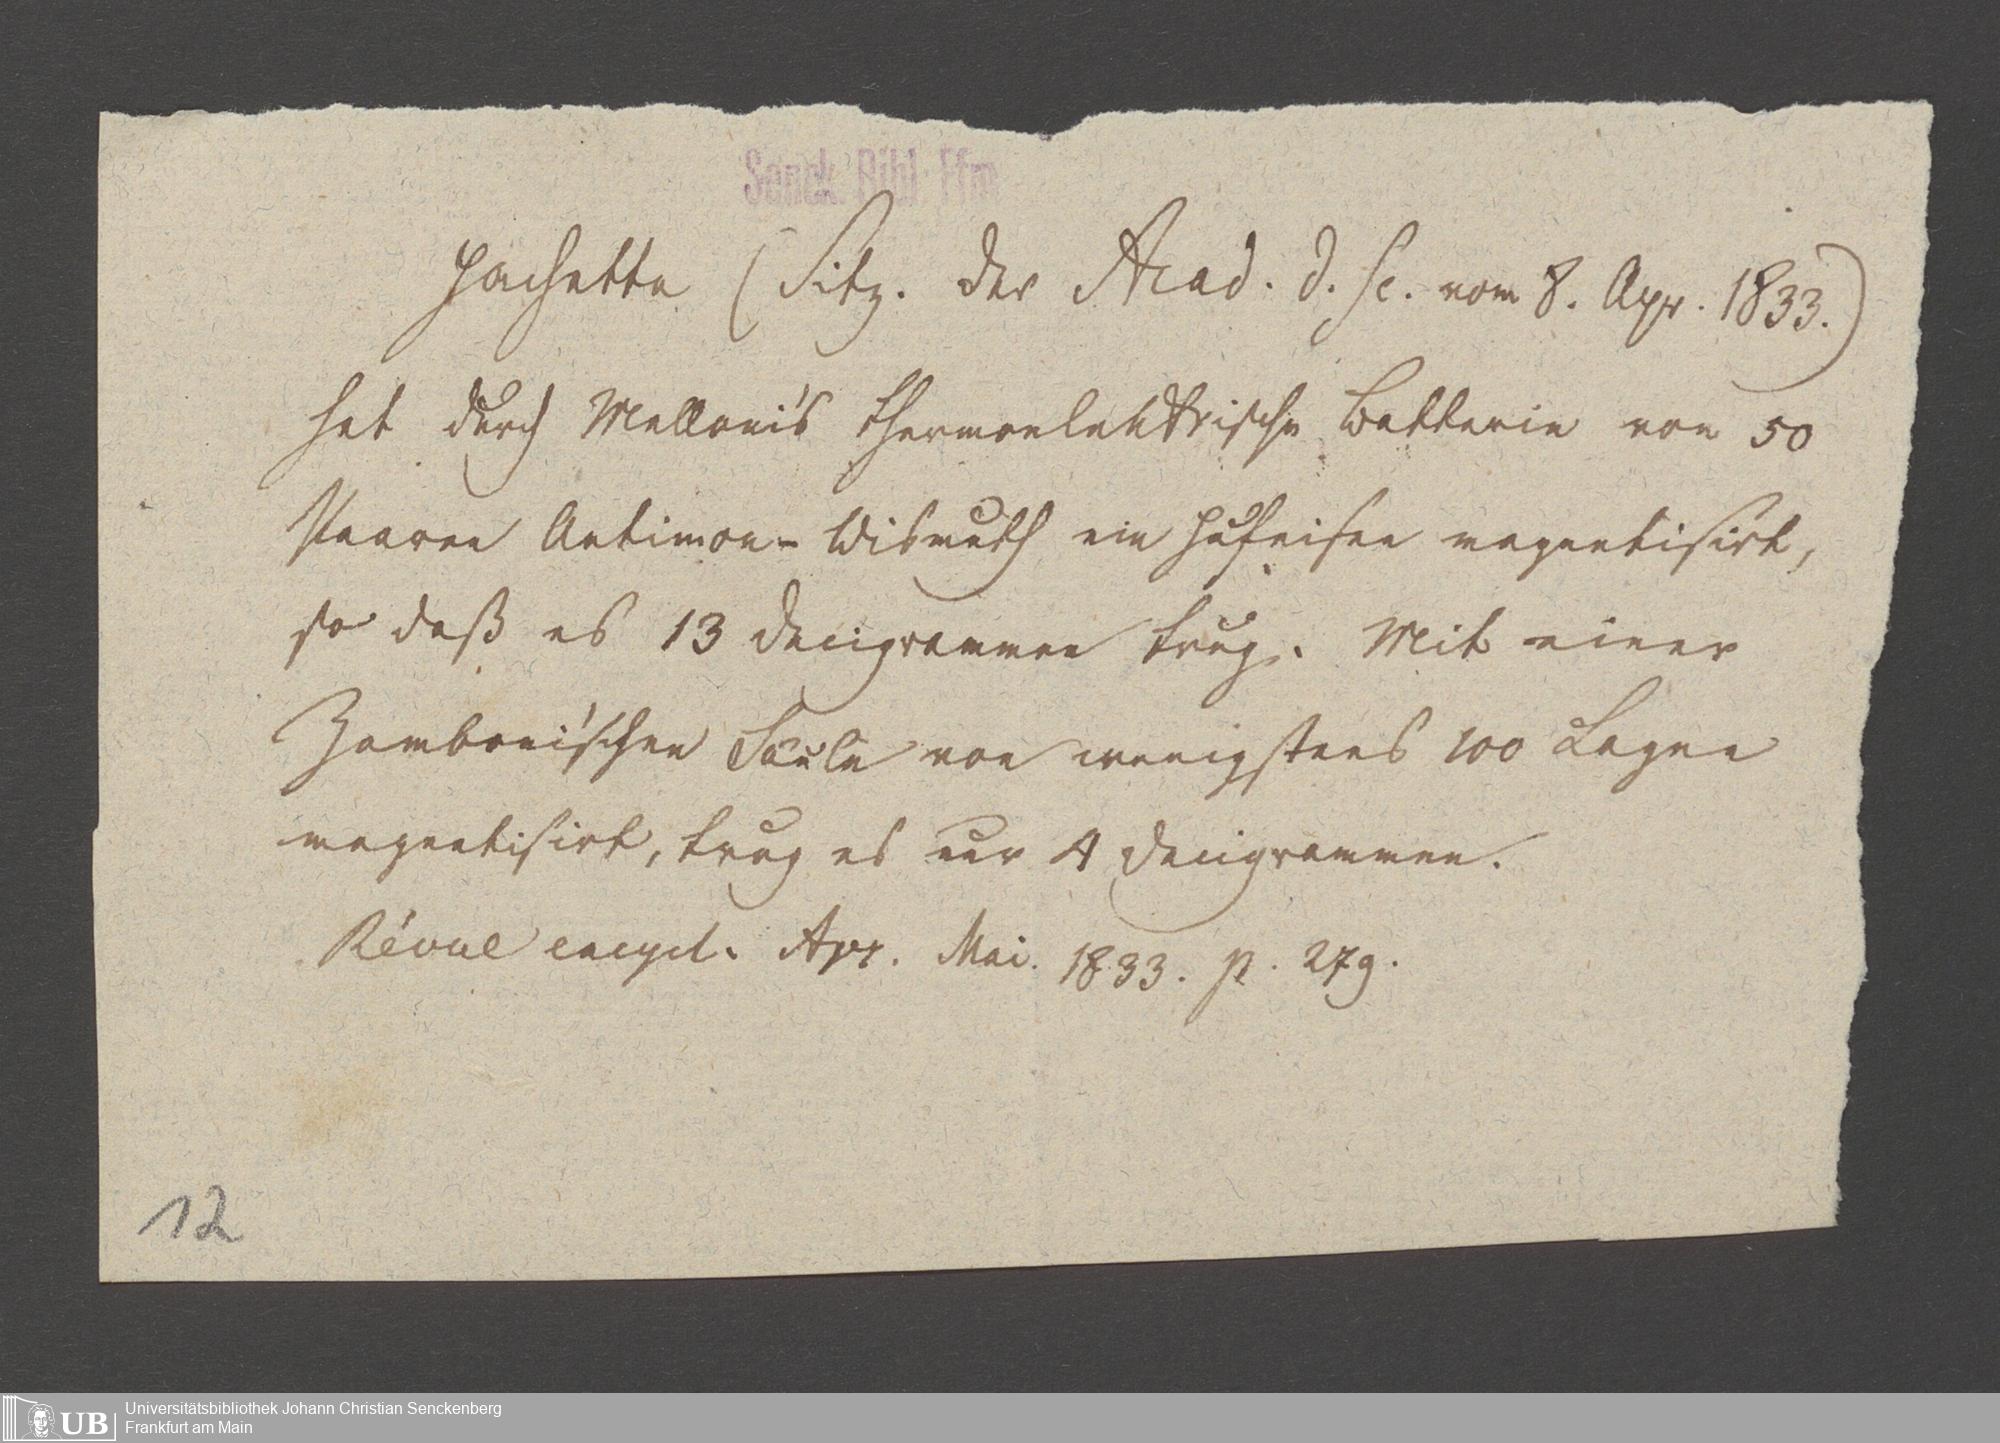 Senck. Bibl. Ffm
Hachette (Sitz. der Acad. d. Sc. vom 8. Apr. 1833.)
hat durch Melloni's thermoelektrische Batterie von 50
Paaren Antimon-Wismuth ein Hufeisen magnetisirt,
so daß es 13 Decigrammen trug. Mit einer
Zamboni'schen Säule von wenigstens 100 Lagen
magnetisirt, trug es nur 4 Decigrammen.
Révue encycl. Apr. Mai. 1833. p. 279.
12
UB
Universitätsbibliothek Johann Christian Senckenberg
Frankfurt am Main